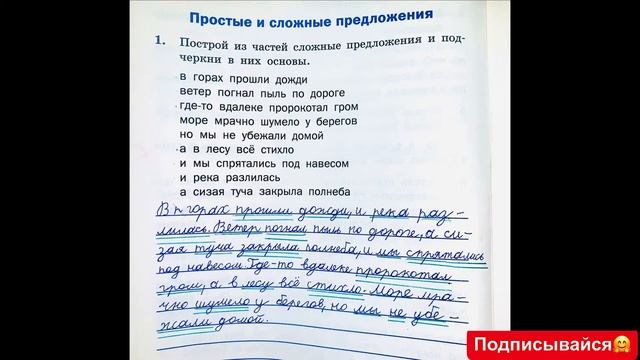 Простые и сложные предложения
1. Построй из частей сложные предложения и под-
черкни в них основы.
в горах прошли дожди
ветер погнал пыль по дороге
где-то вдалеке пророкотал гром
море мрачно шумело у берегов
но мы не убежали домой
а в лесу всё стихло
и мы спрятались под навесом
и река разлилась
а сизая туча закрыла полнеба
В горах прошли дожди, и река раз-
лилась. Ветер погнал пыль по дороге, а си-
зая туча закрыла полнеба, и мы спрятались
под навесом. Где-то вдалеке пророкотал
гром, а в лесу всё стихло. Море мра-
чно шумело у берегов, но мы не убе-
жали домой.
Подписывайся